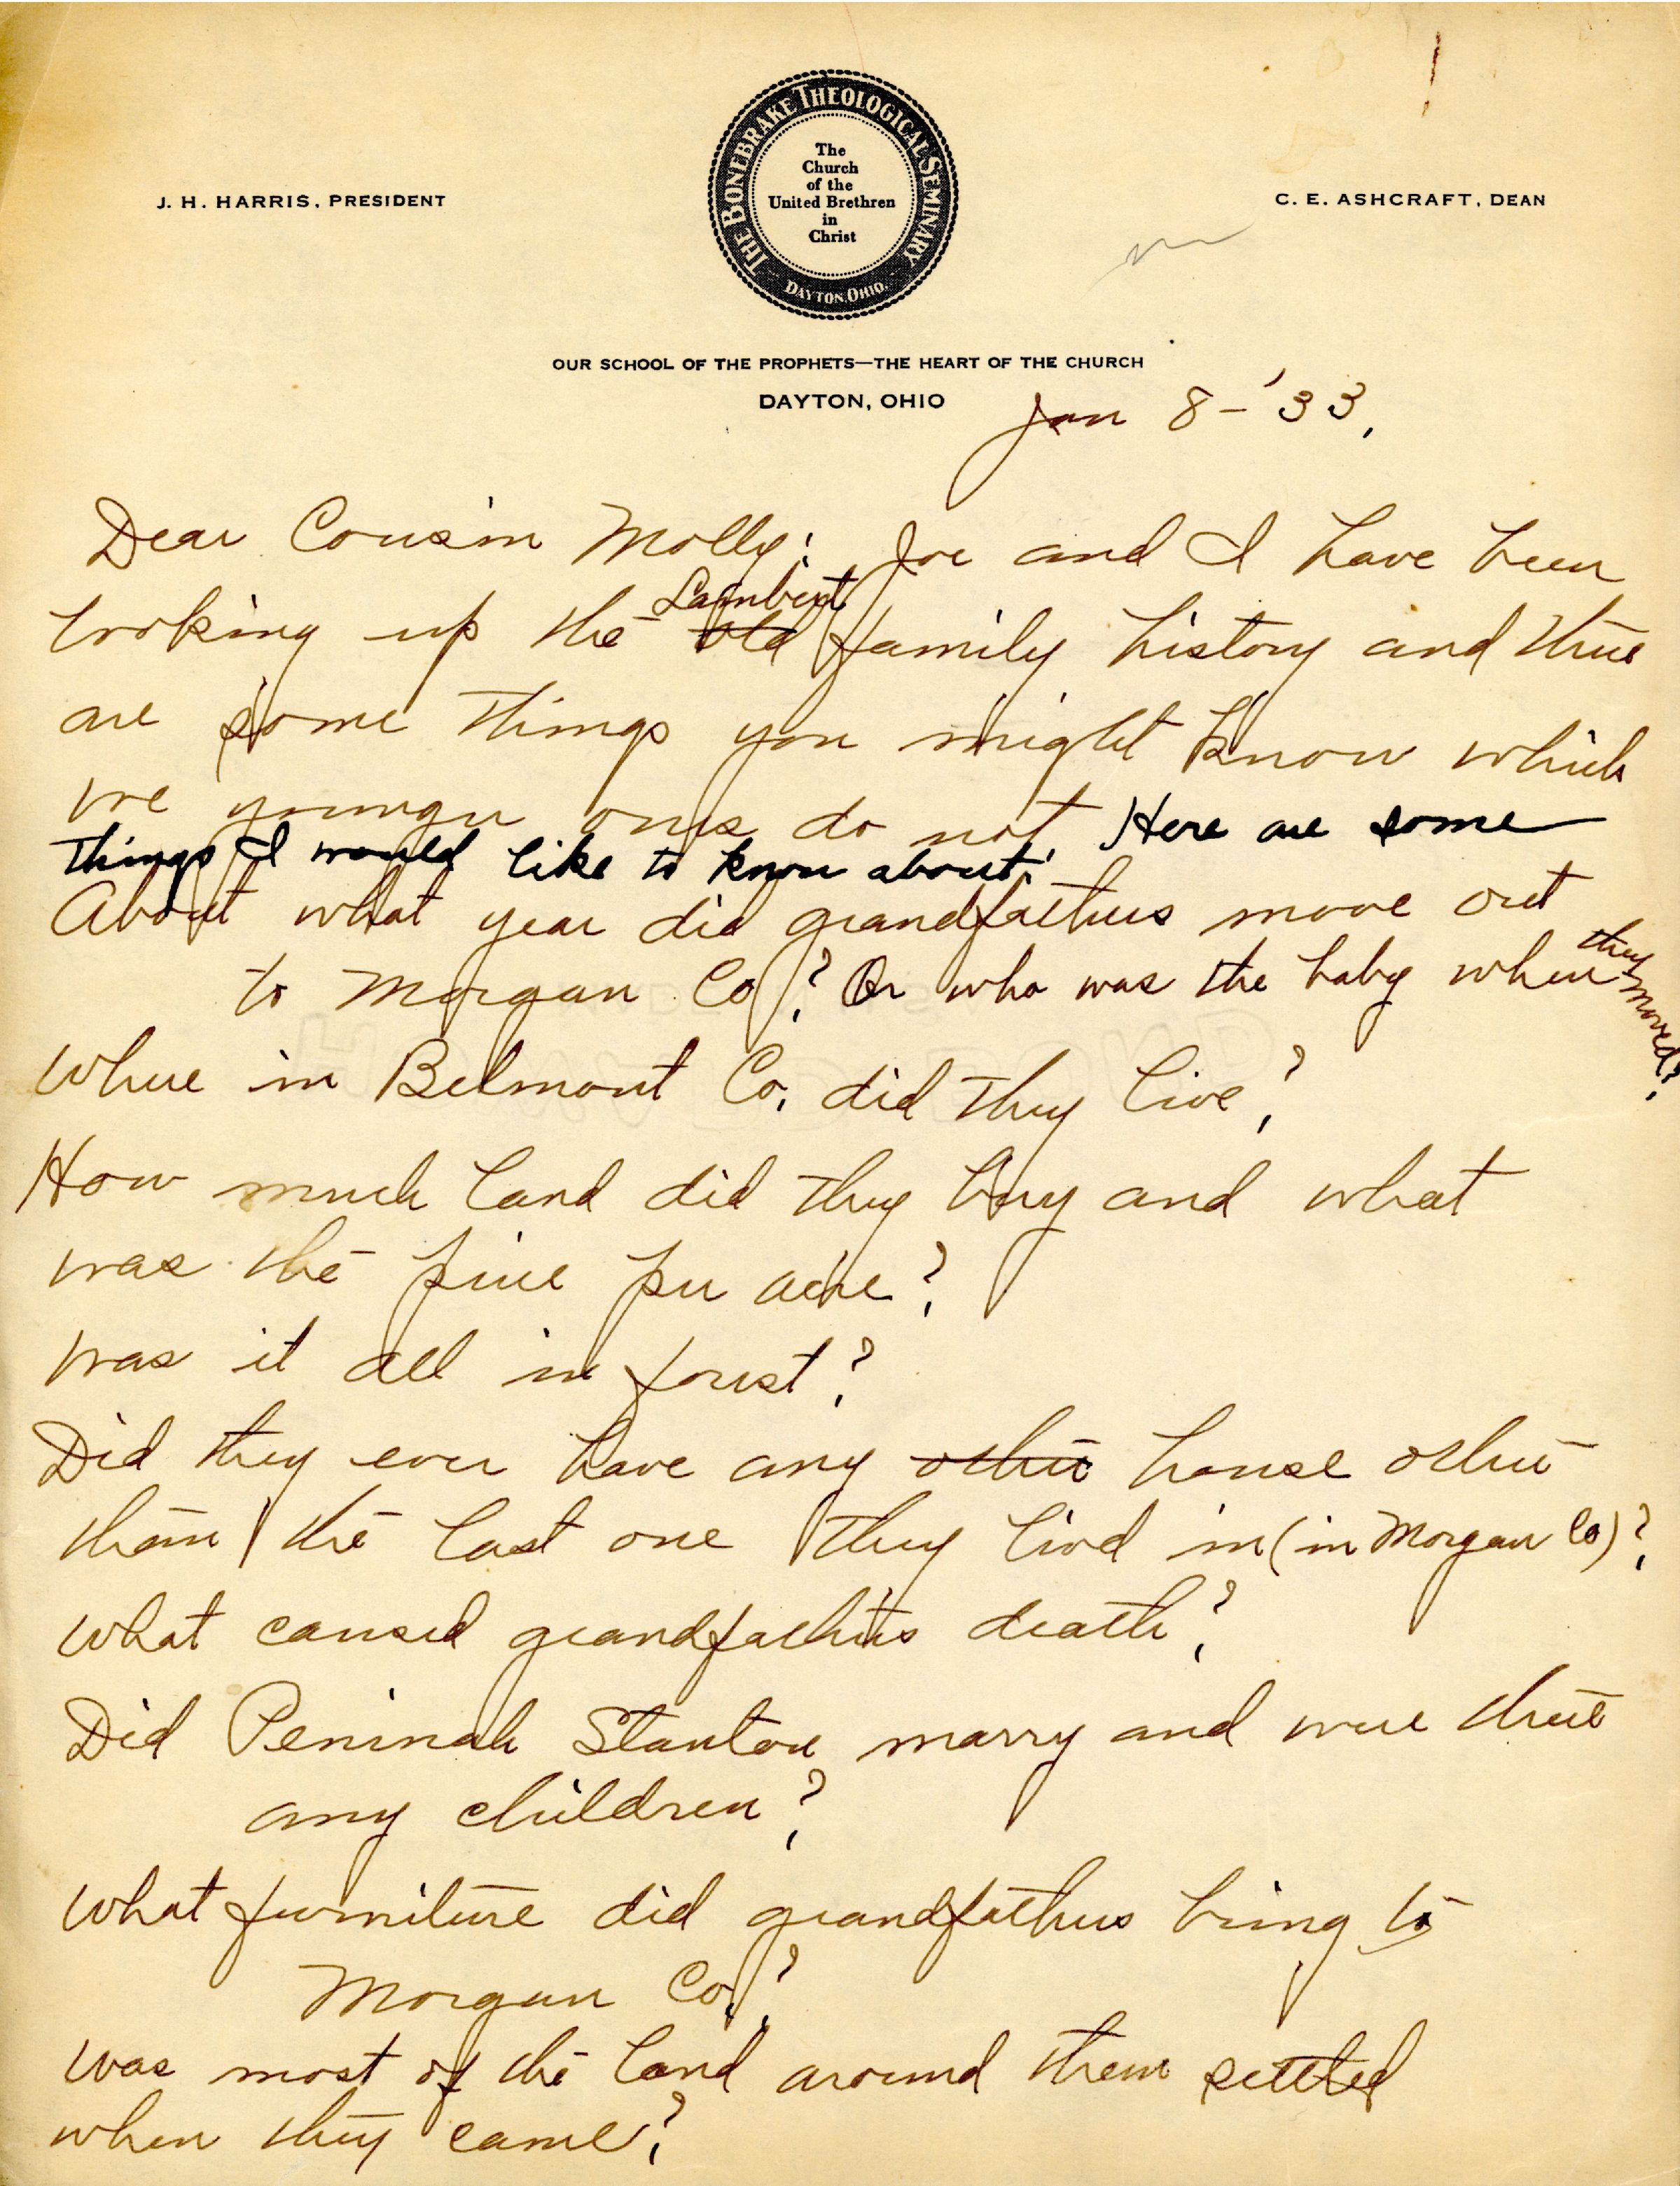 J. H. HARRIS, PRESIDENT
THE BONEBRAKE THEOLOGICAL SEMINARY
DAYTON, OHIO.
The
Church
of the
United Brethren
in
Christ
C. E. ASHCRAFT, DEAN
OUR SCHOOL OF THE PROPHETS—THE HEART OF THE CHURCH
DAYTON, OHIO
Jan 8-'33.
Dear Cousin Molly: Joe and I have been
looking up the ~~old~~ Lambert family history and there
are some things you might know which
we younger ones do not. Here are some
things I would like to know about:
About what year did grandfathers move out
to Morgan Co? Or who was the baby when they moved?
Where in Belmont Co. did they live?
How much land did they buy and what
was the price per acre?
Was it all in forest?
Did they ever have any ~~other~~ house other
than the last one they lived in (in Morgan Co)?
What caused grandfathers death?
Did Peninah Stanton marry and were there
any children?
What furniture did grandfathers bring to
Morgan Co.?
Was most of the land around them settled
when they came?